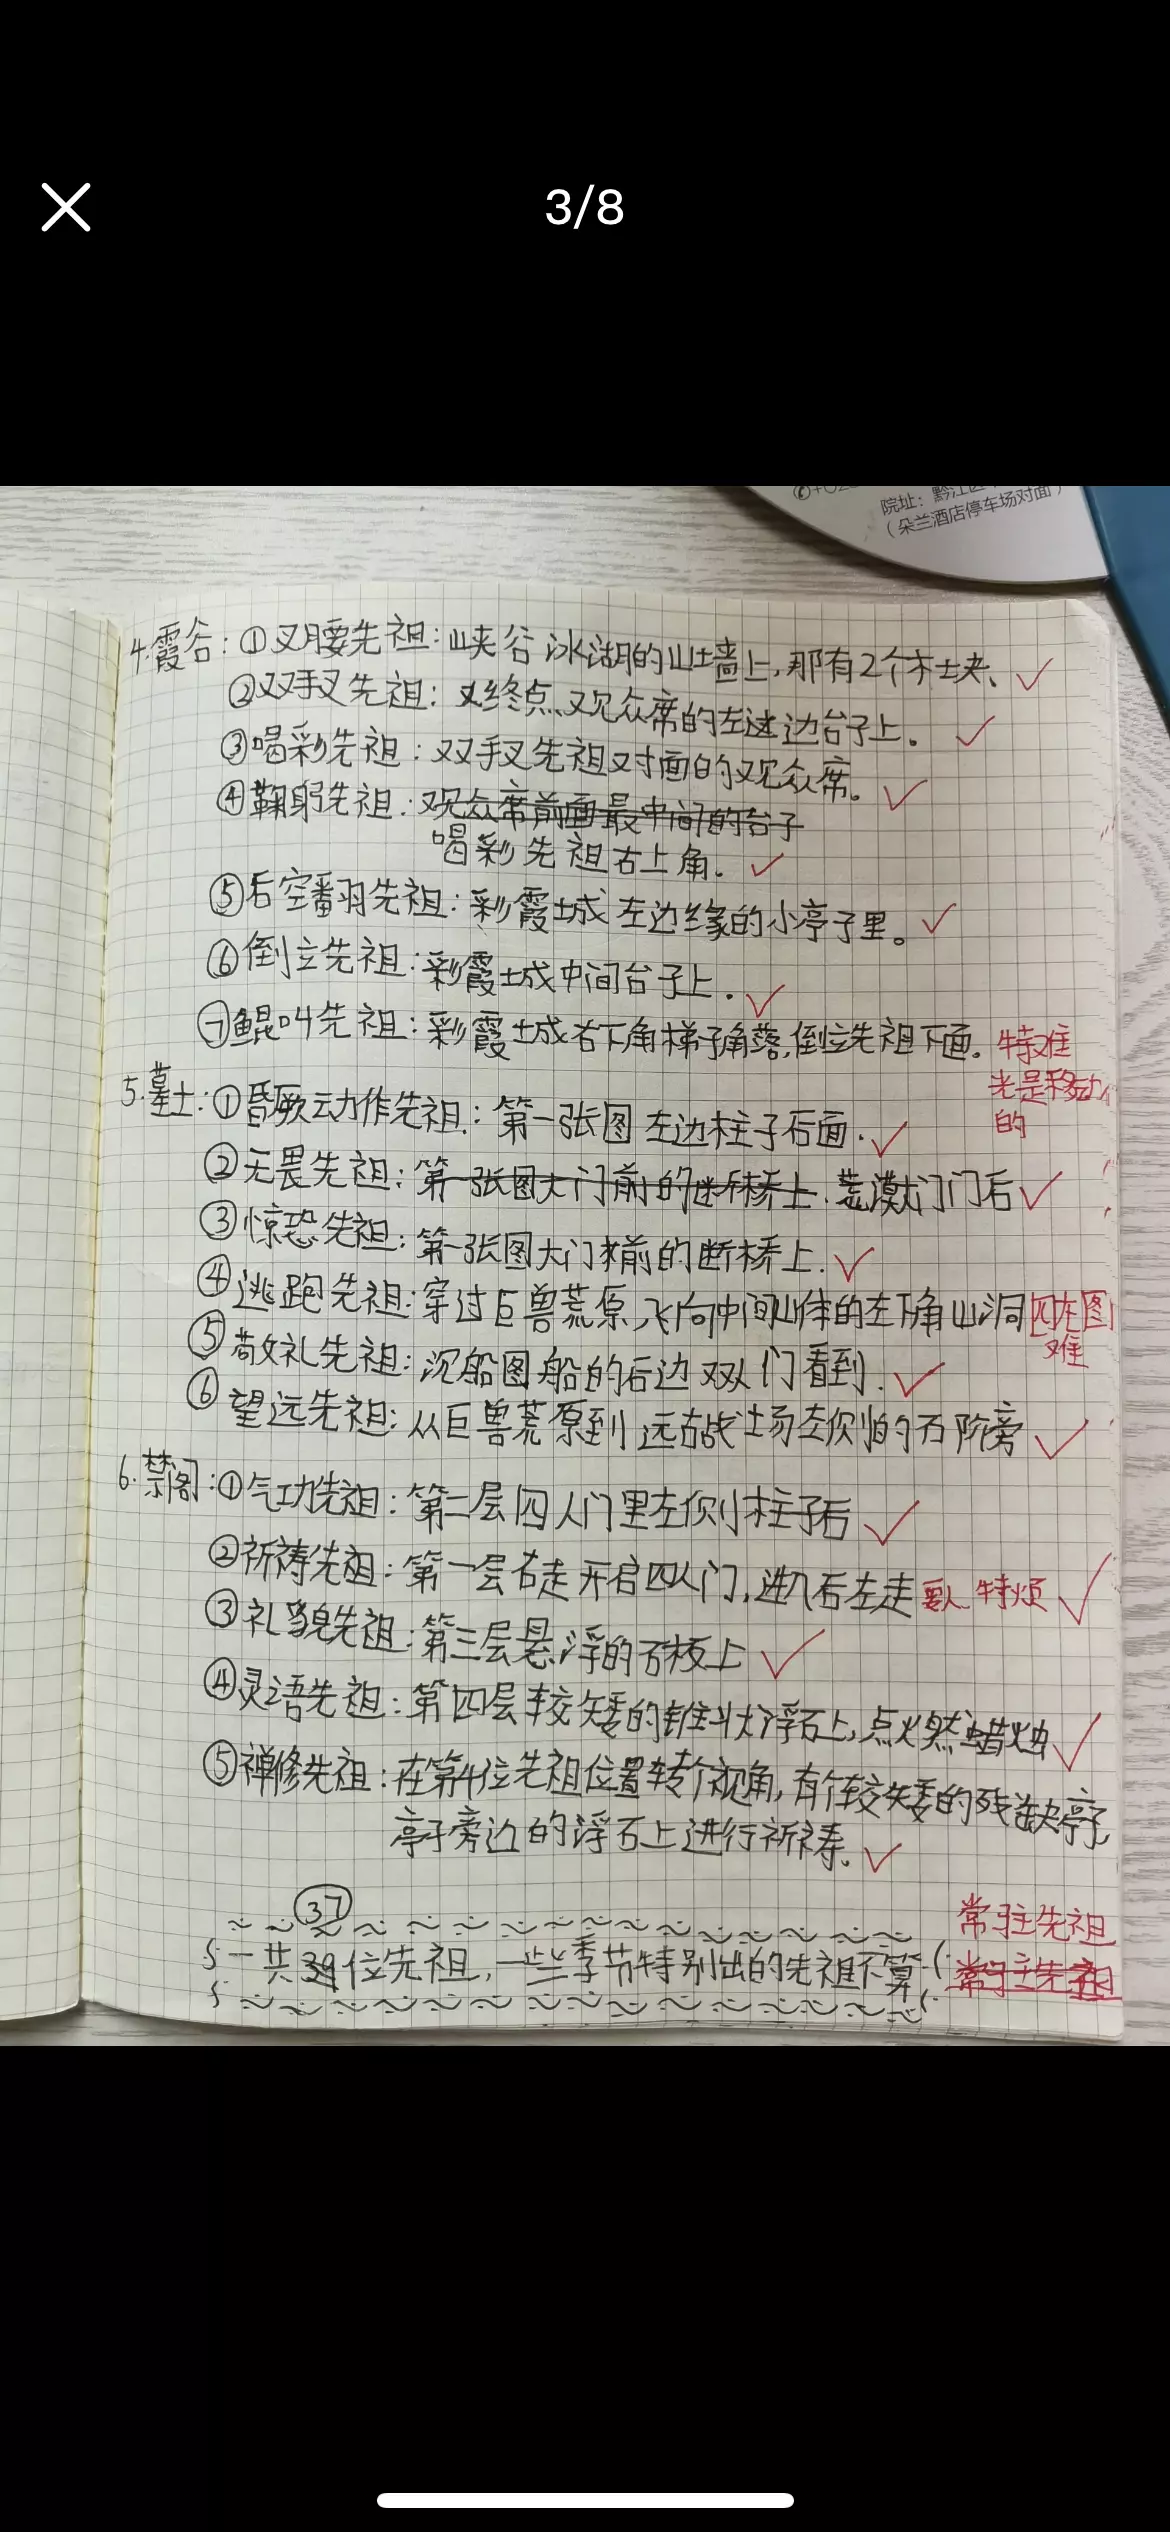 3/8
院址：黔江区
（朵兰酒店停车场对面）
4.霞谷：①叉腰先祖：峡谷冰湖的山墙上，那有2个木块、
②双手叉先祖：终点观众席的左边台子上。
③喝彩先祖：双手叉先祖对面的观众席。
④鞠躬先祖：观众席前面最中间的台子
喝彩先祖右上角.
⑤后空翻先祖：彩霞城左边缘的小亭子里。
⑥倒立先祖：彩霞城中间台子上.
⑦鲲叫先祖：彩霞城右下角梯子角落，倒立先祖下面. 特难
光是移动
的
5.墓土：①昏厥动作先祖：第一张图左边柱子后面.
②无畏先祖：第一张图大门前的断桥上. 荒漠大门门后
③惊恐先祖：第一张图大门前的断桥上.
④逃跑先祖：穿过巨兽荒原，飞向中间山体的左下角山洞 四龙图
难
⑤敬礼先祖：沉船图船的后边双人门看到.
⑥望远先祖：从巨兽荒原到远古战场左侧的石阶旁
6.禁阁：①气功先祖：第二层四人门里左侧小柱子后
②祈祷先祖：第一层右走开启四人门，进入后左走 要人 特烦
③礼貌先祖：第三层悬浮的石板上
④灵语先祖：第四层较矮的锥状浮石上，点燃蜡烛
⑤禅修先祖：在第4位先祖位置转个视角，有个较矮的残缺亭子
亭子旁边的浮石上进行祈祷.
37
一共39位先祖，一些季节特别出的先祖不算（
常驻先祖
常驻先祖